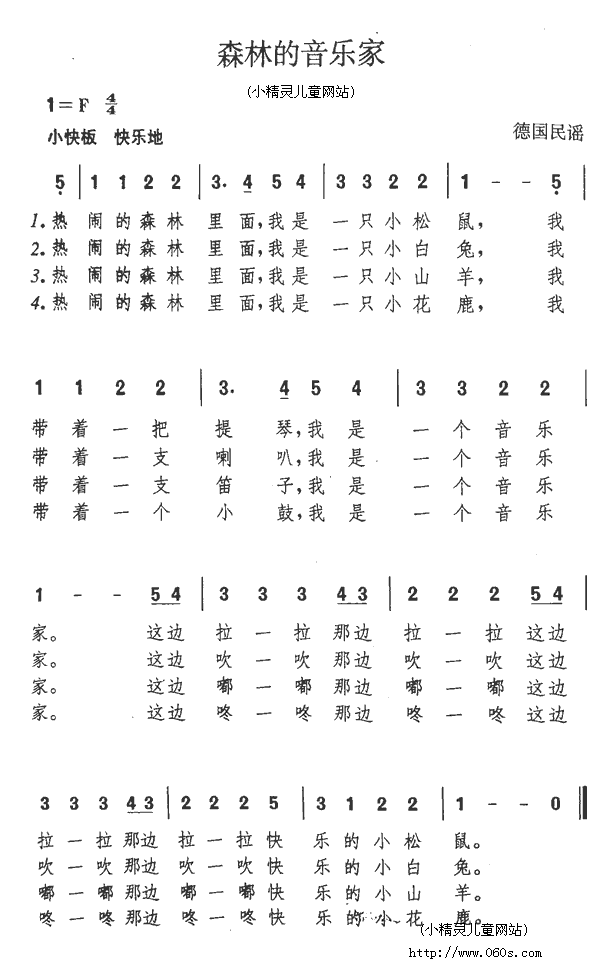 森林的音乐家
(小精灵儿童网站)
1=F 4/4
小快板 快乐地
德国民谣
5̣ | 1 1 2 2 | 3. 4 5 4 | 3 3 2 2 | 1 - - 5̣ |
1.热 闹的森林 里面,我是 一只小松 鼠, 我
2.热 闹的森林 里面,我是 一只小白 兔, 我
3.热 闹的森林 里面,我是 一只小山 羊, 我
4.热 闹的森林 里面,我是 一只小花 鹿, 我
1 1 2 2 | 3. 4 5 4 | 3 3 2 2 |
带着一把 提琴,我是 一个音乐
带着一支 喇叭,我是 一个音乐
带着一支 笛子,我是 一个音乐
带着一个 小鼓,我是 一个音乐
1 - - 54 | 3 3 3 43 | 2 2 2 54 |
家。 这边 拉一拉那边 拉一拉这边
家。 这边 吹一吹那边 吹一吹这边
家。 这边 嘟一嘟那边 嘟一嘟这边
家。 这边 咚一咚那边 咚一咚这边
3 3 3 43 | 2 2 2 5 | 3 1 2 2 | 1 - - 0 ‖
拉一拉那边 拉一拉快 乐的小松 鼠。
吹一吹那边 吹一吹快 乐的小白 兔。
嘟一嘟那边 嘟一嘟快 乐的小山 羊。
咚一咚那边 咚一咚快 乐的小花 鹿。
(小精灵儿童网站)
http://www.060s.com